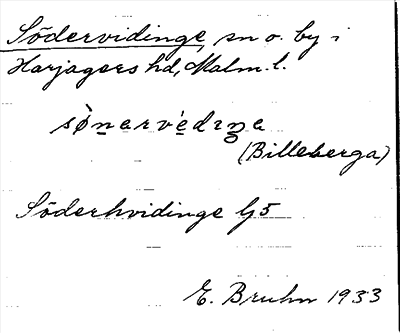 Södervidinge, sn o. by i
Harjagers hd, Malm. l.
sø̀narvèdiŋa
(Billeberga)
Söderhvidinge
E. Bruhn 1933